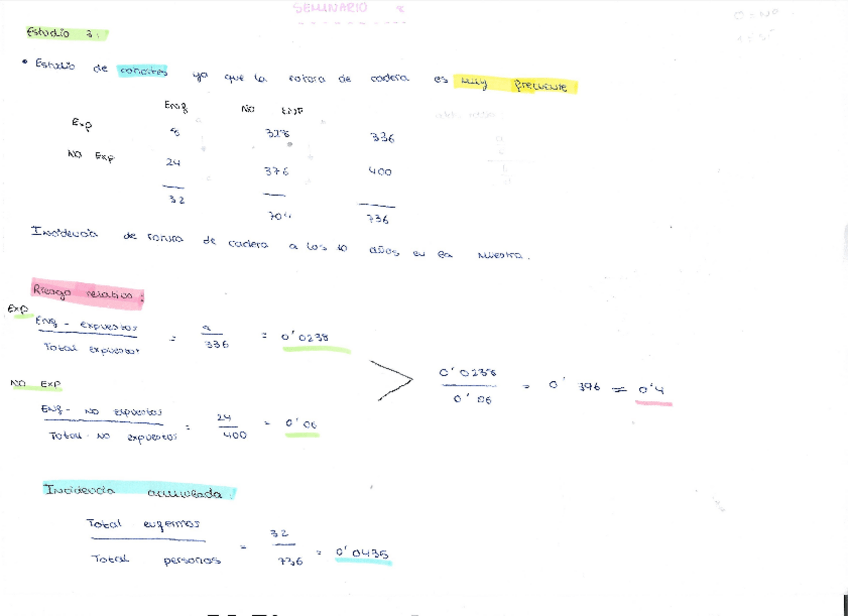 SEMINARIO
Estudio 3:
• Estudio de cohortes ya que la rotura de cadera es muy frecuente
Enf No Enf
Exp 8 328 336
No Exp 24 376 400
32 704 736
Incidencia de rotura de cadera a los 10 años en la muestra.
Riesgo relativo:
Exp
Enf - expuestos / Total expuestos = 8 / 336 = 0'0238
No Exp
Enf - no expuestos / Total - no expuestos = 24 / 400 = 0'06
0'0238 / 0'06 = 0' 396 = 0'4
Incidencia acumulada:
Total enfermos / Total personas = 32 / 736 = 0'0435